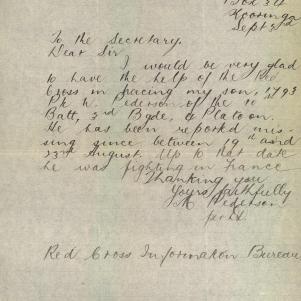 Box 24
Kooringa
Sept 5th
To the Secretary.
Dear Sir,
I would be very glad
to have the help of the Red
Cross in tracing my son, 1793
Pte W. Pederson of the 10th
Batt, 3rd Bgde, Platoon.
He has been reported mis-
sing since between 19th and
23rd August. Up to that date
he was fighting in France
Thanking you
Yours faithfully
M Pederson
Red Cross Information Bureau